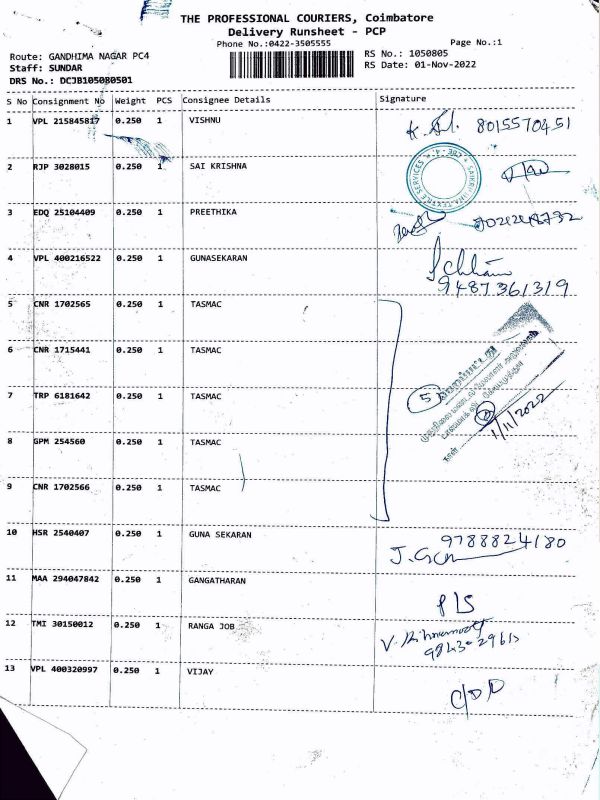 THE PROFESSIONAL COURIERS, Coimbatore
Delivery Runsheet - PCP
Phone No.:0422-3505555
Page No.:1
Route: GANDHIMA NAGAR PC4
RS No.: 1050805
Staff: SUNDAR
RS Date: 01-Nov-2022
DRS No.: DCJB105080501
S No Consignment No Weight PCS Consignee Details Signature
1 VPL 215845817 0.250 1 VISHNU 8015570451
2 RJP 3028015 0.250 1 SAI KRISHNA
3 EDQ 25104409 0.250 1 PREETHIKA
4 VPL 400216522 0.250 1 GUNASEKARAN
9487361319
5 CNR 1702565 0.250 1 TASMAC
6 CNR 1715441 0.250 1 TASMAC
7 TRP 6181642 0.250 1 TASMAC 5
1/11/2022
8 GPM 254560 0.250 1 TASMAC
நாள்
9 CNR 1702566 0.250 1 TASMAC
10 HSR 2540407 0.250 1 GUNA SEKARAN 9788824180
11 MAA 294047842 0.250 1 GANGATHARAN
P/S
12 TMI 30150012 0.250 1 RANGA JOB
13 VPL 400320997 0.250 1 VIJAY